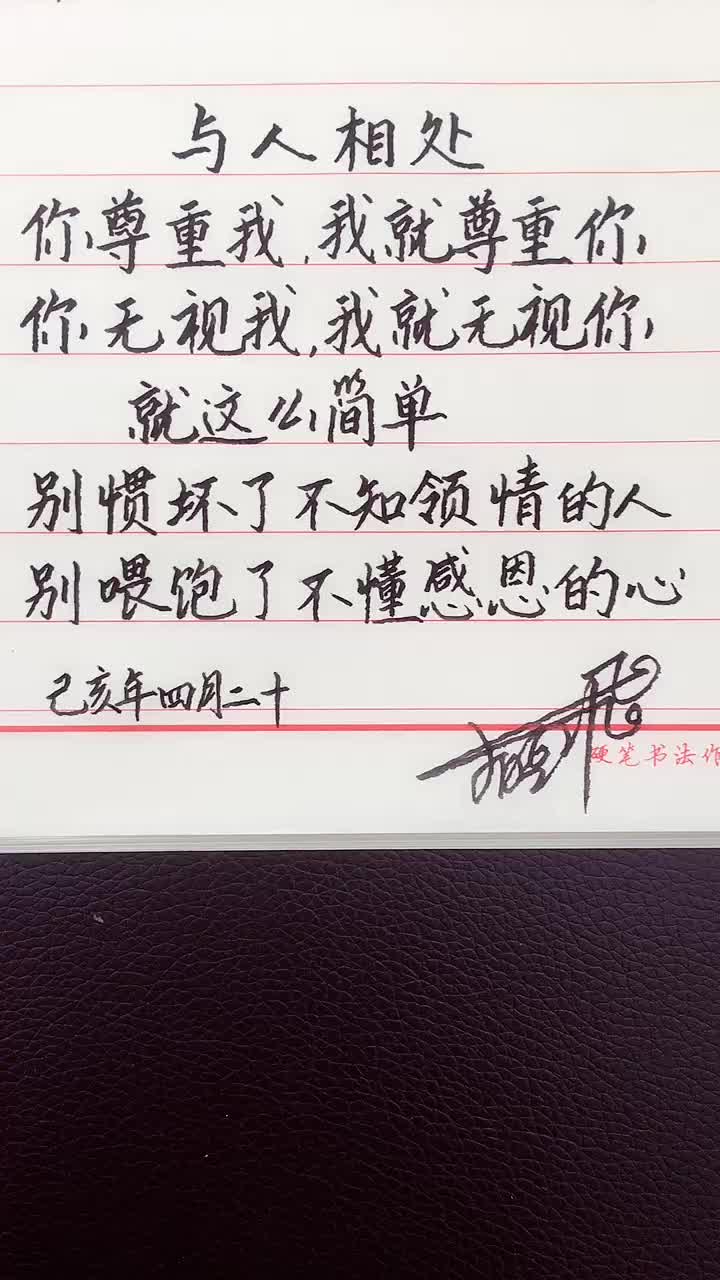 与人相处
你尊重我,我就尊重你
你无视我,我就无视你
就这么简单
别惯坏了不知领情的人
别喂饱了不懂感恩的心
己亥年四月二十
硬笔书法作